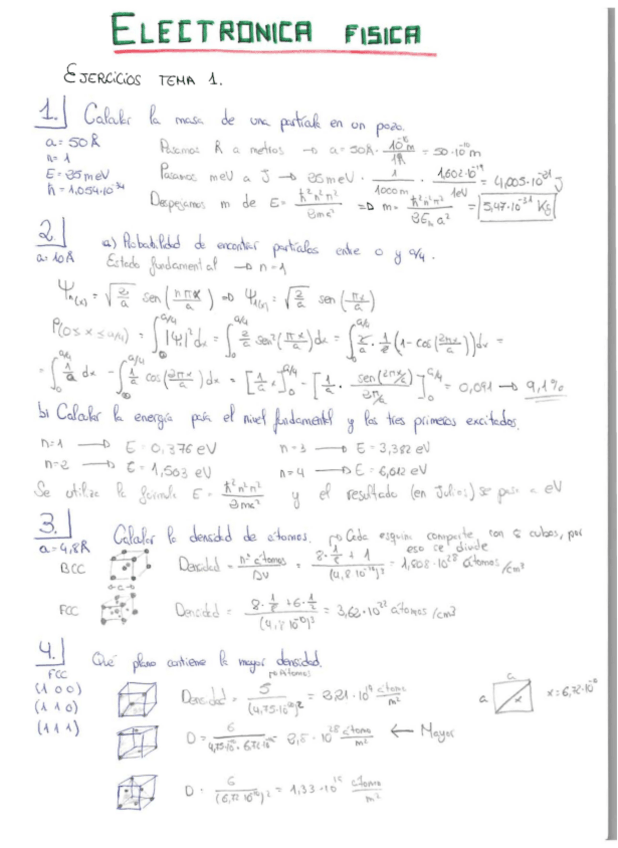 ELECTRONICA FISICA
EJERCICIOS TEMA 1.
1. Calcular la masa de una partícula en un pozo.
a = 50 Å
n = 1
E = 25 meV
ħ = 1,054·10^-34
Pasamos Å a metros → a = 50Å · 10^-10 m / 1Å = 50·10^-10 m
Pasamos meV a J → 25 meV · 1 / 1000 m · 1,602·10^-19 / 1eV = 4,005·10^-21 J
Despejamos m de E =
2.
a = 10 Å
a) Probabilidad de encontrar partículas entre 0 y a/4.
Estado fundamental → n = 1
Ψn(x) = √(2/a) sen(nπx/a) ⇒ Ψ1(x) = √(2/a) sen(πx/a)
P(0 ≤ x ≤ a/4) = ∫0^a/4 |Ψ|² dx = ∫0^a/4 2/a sen²(πx/a) dx = ∫0^a/4 2/a · 1/2 (1 - cos(2πx/a)) dx =
= ∫0^a/4 1/a dx - ∫0^a/4 1/a cos(2πx/a) dx = [1/a x]0^a/4 - [1/a · sen(2πx/a) / 2π/a]0^a/4 = 0,091 → 9,1%
b) Calcular la energía para el nivel fundamental y los tres primeros excitados.
n=1 → E = 0,376 eV n=3 → E = 3,382 eV
n=2 → E = 1,503 eV n=4 → E = 6,012 eV
Se utiliza la formula E = y el resultado (en Julios) se pasa a eV
3. Calcular la densidad de átomos. → Cada esquina comparte con 8 cubos, por
eso se divide
a = 4,8 Å
BCC Densidad = nº átomos / ΔV = 8 · 1/8 + 1 / (4,8·10^-10)³ = 1,808·10^28 átomos/cm³
FCC Densidad = 8 · 1/8 + 6 · 1/2 / (4,8·10^-10)³ = 3,62·10^22 átomos/cm³
4. Qué plano contiene la mayor densidad.
FCC
(1 0 0) Densidad = 5 / (4,75·10^-10)² = m²
a a x x = 6,72·10
(1 1 0) D = 6 / = m² ← Mayor
(1 1 1)
D = 6 / (6,72·10^-10)² = m²